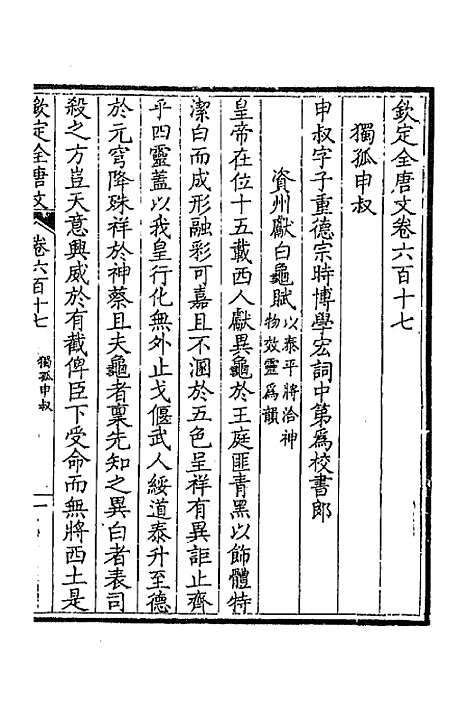 欽定全唐文卷六百十七
獨孤申叔
申叔字子重德宗時博學宏詞中第爲校書郎
資州獻白龜賦以泰平將洽神
物效靈爲韻
皇帝在位十五載西人獻異龜於王庭匪青黑以飾體特
潔白而成形融彩可嘉且不溷於五色呈祥有異詎止齊
乎四靈蓋以我皇行化無外止戈偃武人綏道泰升至德
於元穹降殊祥於神蔡且夫龜者稟先知之異白者表司
殺之方豈天意興威於有截俾臣下受命而無將西土是
欽定全唐文
卷六百十七
獨孤申叔
一